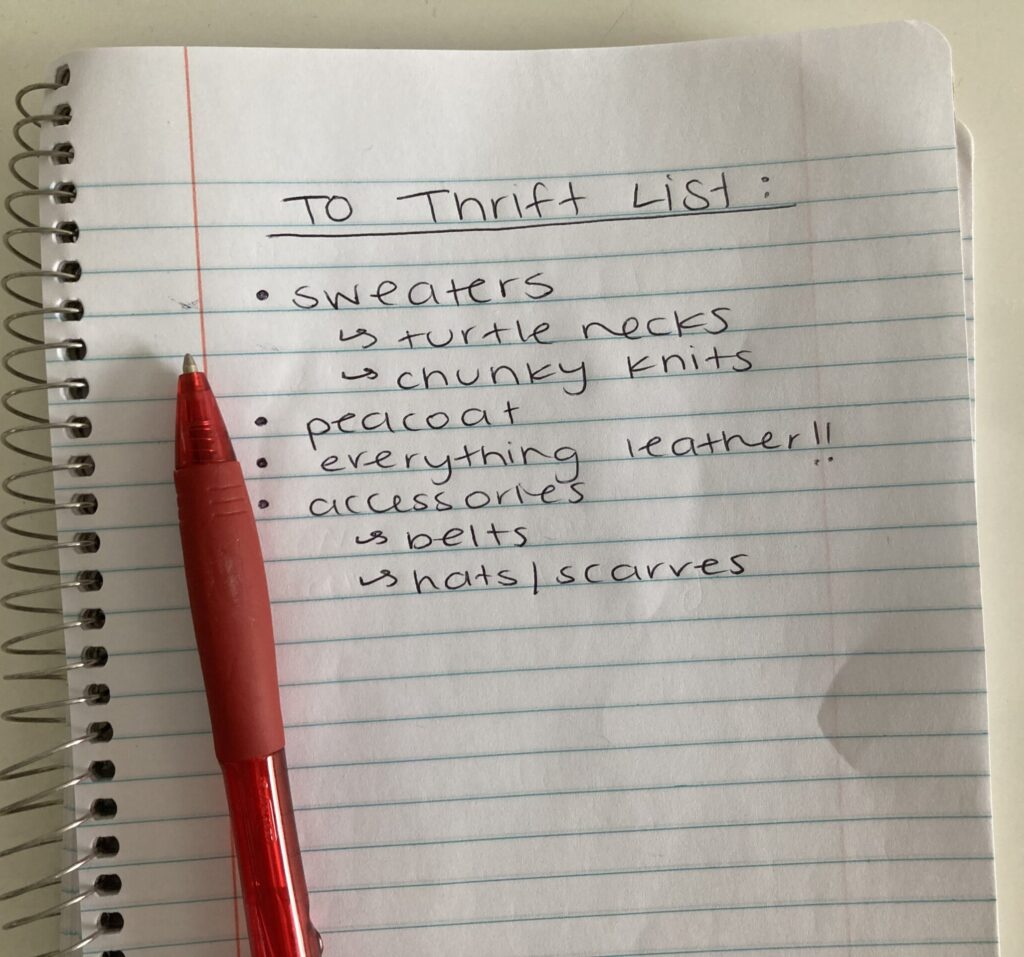 To Thrift List:
• sweaters
↳ turtle necks
↳ chunky knits
• peacoat
• everything leather!!
• accessories
↳ belts
↳ hats/scarves